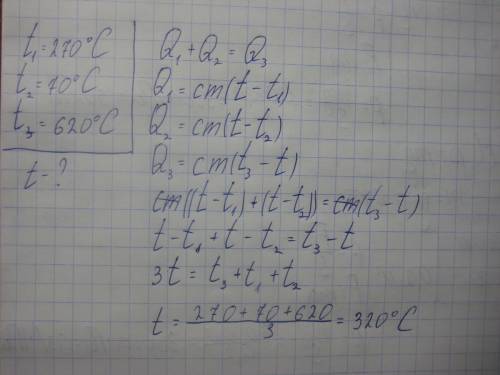 t₁ = 270°C
t₂ = 70°C
t₃ = 620°C
t - ?
Q₁ + Q₂ = Q₃
Q₁ = cm(t - t₁)
Q₂ = cm(t - t₂)
Q₃ = cm(t₃ - t)
cm((t - t₁) + (t - t₂)) = cm(t₃ - t)
t - t₁ + t - t₂ = t₃ - t
3t = t₃ + t₁ + t₂
t = (270 + 70 + 620)/3 = 320°C